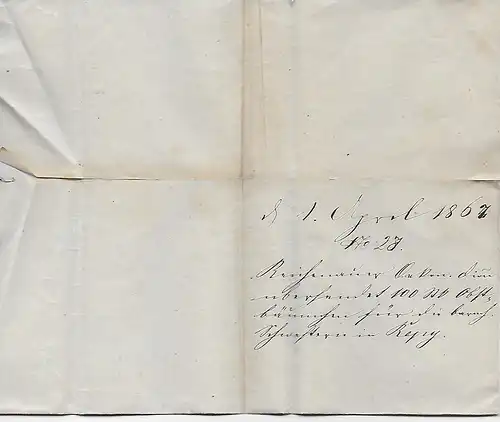 d 1. April 1867
No 27.
Reichenauer Oekon. Dion
übersendet 100 Stk Obst-
bäumchen für die barmh.
Schwestern in Řepy.